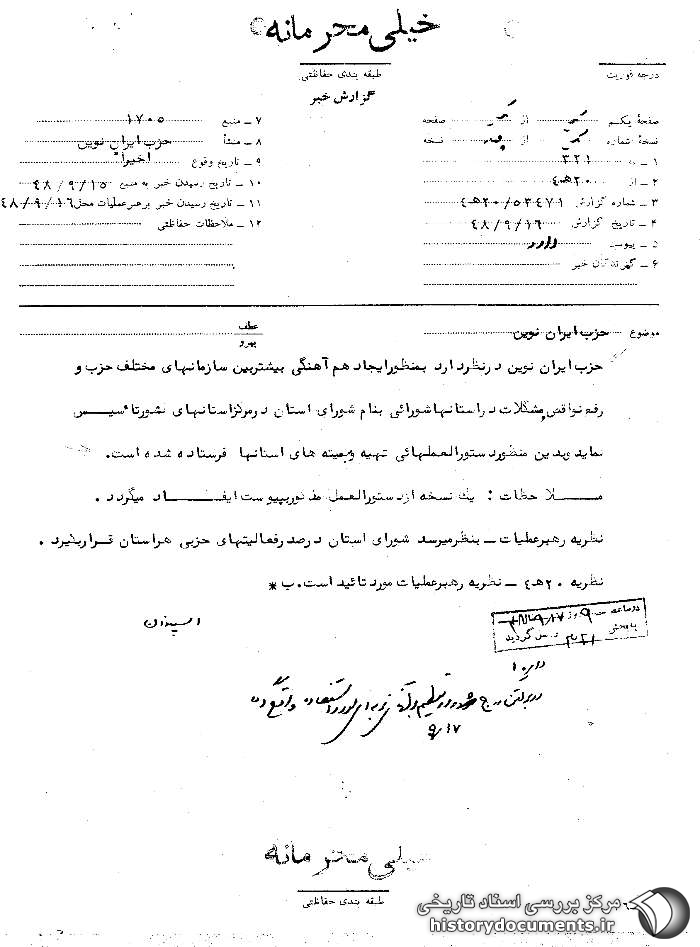 خیلی محرمانه
طبقه بندی حفاظتی
درجه فوریت
گزارش خبر
صفحهٔ یکم یک از یک صفحه
نسخهٔ شماره یک از نسخه
۱ ـ به ۳۲۱
۲ ـ از ۲۰هـ٤
۳ ـ شماره گزارش ۵۳٤۷۱/ ۲۰هـ٤
٤ ـ تاریخ گزارش ٤۸/۹/۱٦
۵ ـ پیوست دارد
٦ ـ گیرندگان خبر
۷ ـ منبع ۱۷۰۵
۸ ـ منشأ حزب ایران نوین
۹ ـ تاریخ وقوع اخیراً
۱۰ ـ تاریخ رسیدن خبر به منبع ٤۸/۹/۱۵
۱۱ ـ تاریخ رسیدن خبر برهبر عملیات محل ٤۸/۹/۱٦
۱۲ ـ ملاحظات حفاظتی
موضوع حزب ایران نوین
عطف
پیرو
حزب ایران نوین در نظر دارد بمنظور ایجاد هم آهنگی بیشتر بین سازمانهای مختلف حزب و
رفع نواقص و مشکلات در استانها شورائی بنام شورای استان در مرکز استانهای کشور تأسیس
نماید و بدین منظور دستورالعملهائی تهیه و بکمیته های استانها فرستاده شده است.
ملاحظات : یک نسخه از دستورالعمل مذکور بپیوست ایفاد میگردد .
نظریه رهبر عملیات ـ بنظر میرسد شورای استان در صدر فعالیتهای حزبی هر استان قرار بگیرد .
نظریه ۲۰هـ٤ ـ نظریه رهبر عملیات مورد تائید است. ب *
در ساعت روز
به بخش ۳۲۱ گردید
در بولتن درج
۹/۱۷
خیلی محرمانه
طبقه بندی حفاظتی
مرکز بررسی اسناد تاریخی
historydocuments.ir